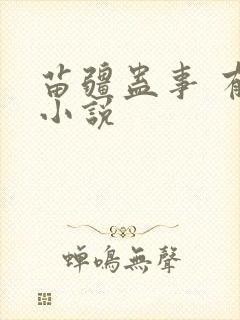 苗疆蛊事 有
小說
蟬鳴無聲